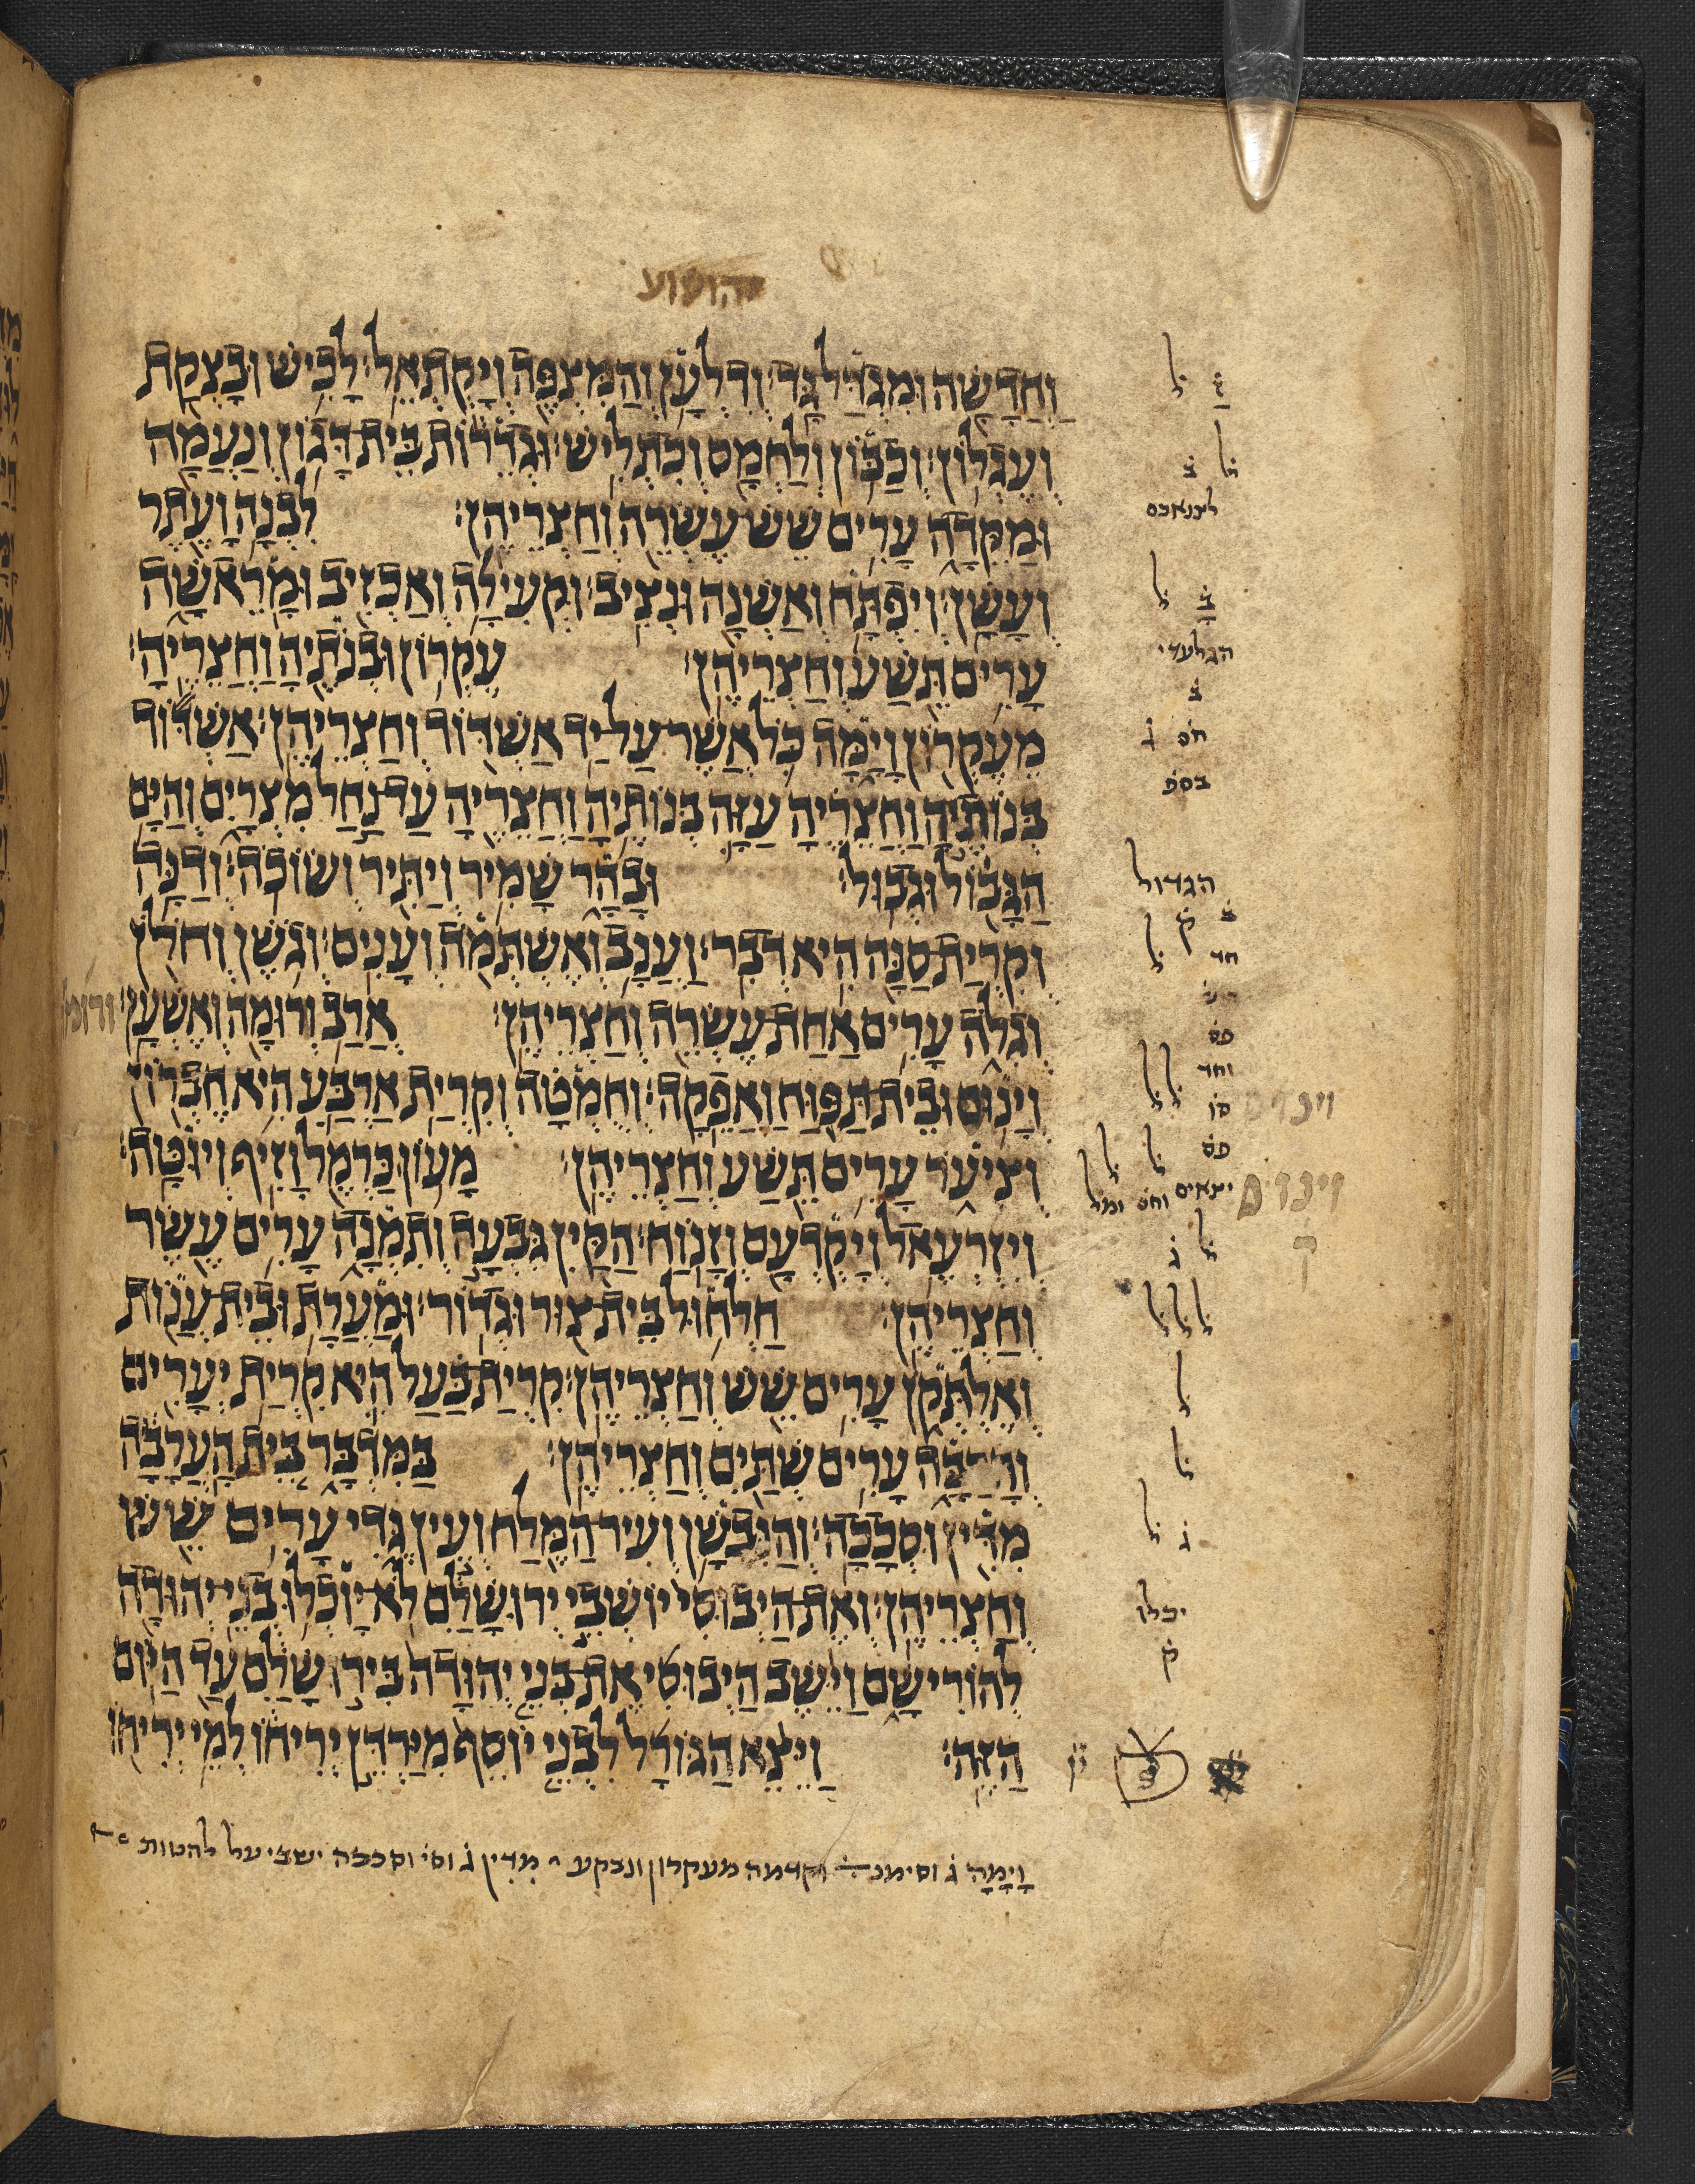 יהושוע
וַחֲדָשָׁה וּמִגְדַּל גָּד׃ וְדִלְעָן וְהַמִּצְפֶּה וְיָקְתְאֵל׃ לָכִישׁ וּבָצְקַת
וְעֶגְלוֹן׃ וְכַבּוֹן וְלַחְמָס וְכִתְלִישׁ׃ וּגְדֵרוֹת בֵּית דָּגוֹן וְנַעֲמָה
וּמַקֵּדָה עָרִים שֵׁשׁ עֶשְׂרֵה וְחַצְרֵיהֶן׃ לִבְנָה וָעֶתֶר
וְעָשָׁן׃ וְיִפְתָּח וְאַשְׁנָה וּנְצִיב׃ וּקְעִילָה וְאַכְזִיב וּמָרֵאשָׁה
עָרִים תֵּשַׁע וְחַצְרֵיהֶן׃ עֶקְרוֹן וּבְנֹתֶיהָ וַחֲצֵרֶיהָ׃
מֵעֶקְרוֹן וָיָמָּה כֹּל אֲשֶׁר עַל יַד אַשְׁדּוֹד וְחַצְרֵיהֶן׃ אַשְׁדּוֹד
בְּנוֹתֶיהָ וַחֲצֵרֶיהָ עַזָּה בְּנוֹתֶיהָ וַחֲצֵרֶיהָ עַד נַחַל מִצְרָיִם וְהַיָּם
הַגָּבוֹל וּגְבוּל׃ וּבָהָר שָׁמִיר וְיַתִּיר וְשׂוֹכֹה׃ וְדַנָּה
וְקִרְיַת סַנָּה הִיא דְבִר׃ וַעֲנָב וְאֶשְׁתְּמֹה וְעָנִים׃ וְגֹשֶׁן וְחֹלֹן
וְגִלֹה עָרִים אַחַת עֶשְׂרֵה וְחַצְרֵיהֶן׃ אֲרַב וְרוּמָה וְאֶשְׁעָן׃ ודומה
וְיַנִוּם וּבֵית תַּפּוּחַ וַאֲפֵקָה׃ וְחֻמְטָה וְקִרְיַת אַרְבַּע הִיא חֶבְרוֹן
וְצִיעֹר עָרִים תֵּשַׁע וְחַצְרֵיהֶן׃ מָעוֹן כַּרְמֶל וָזִיף וְיוּטָּה׃
וְיִזְרְעֶאל וְיָקְדְעָם וְזָנוֹחַ׃ הַקַּיִן גִּבְעָה וְתִמְנָה עָרִים עֶשֶׂר
וְחַצְרֵיהֶן׃ חַלְחוּל בֵּית צוּר וּגְדוֹר׃ וּמַעֲרָת וּבֵית עֲנוֹת
וְאֶלְתְּקֹן עָרִים שֵׁשׁ וְחַצְרֵיהֶן׃ קִרְיַת בַּעַל הִיא קִרְיַת יְעָרִים
וְהָרַבָּה עָרִים שְׁתַּיִם וְחַצְרֵיהֶן׃ בַּמִּדְבָּר בֵּית הָעֲרָבָה
מִדִּין וּסְכָכָה׃ וְהַנִּבְשָׁן וְעִיר הַמֶּלַח וְעֵין גֶּדִי עָרִים שֵׁשׁ
וְחַצְרֵיהֶן׃ וְאֶת הַיְבוּסִי יוֹשְׁבֵי יְרוּשָׁלַם לֹא יוֹכְלוּ בְנֵי יְהוּדָה
לְהוֹרִישָׁם וַיֵּשֶׁב הַיְבוּסִי אֶת בְּנֵי יְהוּדָה בִּירוּשָׁלַם עַד הַיּוֹם
הַזֶּה׃ וַיֵּצֵא הַגּוֹרָל לִבְנֵי יוֹסֵף מִיַּרְדֵּן יְרִיחוֹ לְמֵי יְרִיחוֹ
הגלעדי
חס ג
בספ
הגדול
ק
חד
וחד
וינוים
יכלו
ק
וָיָמָּה ג וסימנ וקדמה מעקרון ונבקע מִדִּין ג וסי וסככה ישבי על להטות